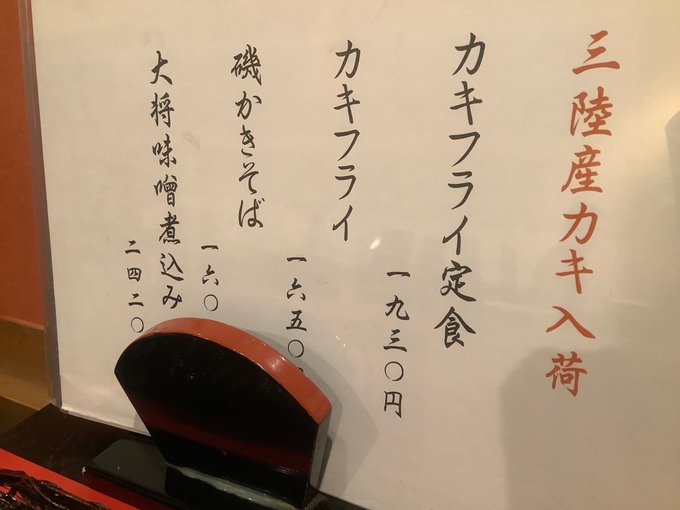 三陸産カキ入荷
カキフライ定食
一九三〇円
カキフライ
一六五〇
磯かきそば
一六〇
大将味噌煮込み
二四二〇